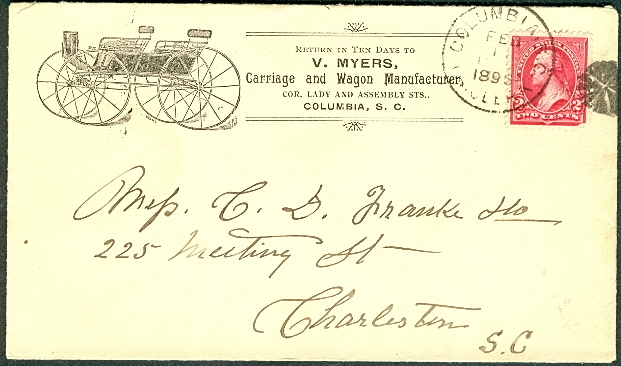 RETURN IN TEN DAYS TO
V. MYERS,
Carriage and Wagon Manufacturer,
COR. LADY AND ASSEMBLY STS.,
COLUMBIA, S. C.
COLUMBIA
FEB
TWO CENTS
2 2
Mess. C. D. Franke & Co
225 Meeting St
Charleston
S.C